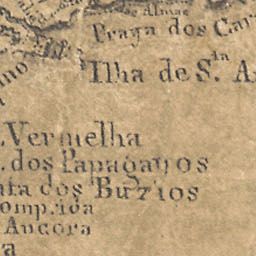 de Almas
Praya dos Car
Ilha de S.ta A
. Vermelha
. dos Papagayos
nta dos Buzios
omprida
Ancora
a